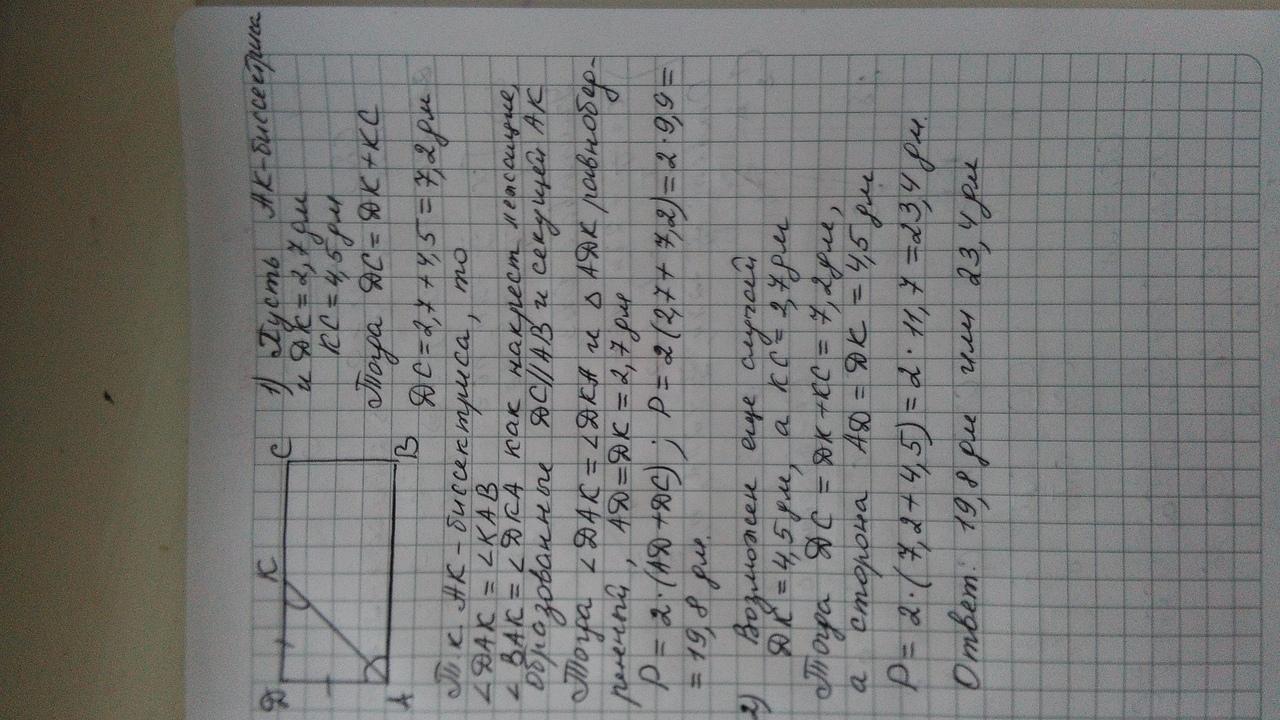 Д К С
А В
1) Пусть АК-биссектриса
и ДК = 2,7 дм
КС = 4,5 дм
Тогда ДС = ДК + КС
ДС = 2,7 + 4,5 = 7,2 дм
Т. к. АК - биссектриса, то
∠ДАК = ∠КАВ
∠ВАК = ∠ДКА как накрест лежащие,
образованные ДС//АВ и секущей АК
Тогда ∠ДАК = ∠ДКА и △ АДК равнобед-
ренный, АД = ДК = 2,7 дм
Р = 2·(АД+ДС); Р = 2(2,7 + 7,2) = 2·9,9 =
= 19,8 дм.
2) Возможен еще случай
ДК = 4,5 дм, а КС = 2,7 дм
Тогда ДС = ДК+КС = 7,2 дм,
а сторона АД = ДК = 4,5 дм
Р = 2·(7,2 + 4,5) = 2·11,7 = 23,4 дм.
Ответ: 19,8 дм или 23,4 дм